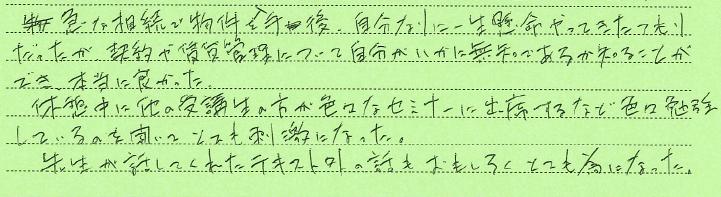 急な相続で物件を手後、自分なりに一生懸命やってきたつもり
だったが、契約や賃貸管理について自分がいかに無知であるか知ることが
でき、本当に良かった。
休憩中に他の受講生の方が色々なセミナーに出席するなど色々勉強
しているのを聞いてとても刺激になった。
先生が話してくれたテキスト外の話もおもしろくとても為になった。